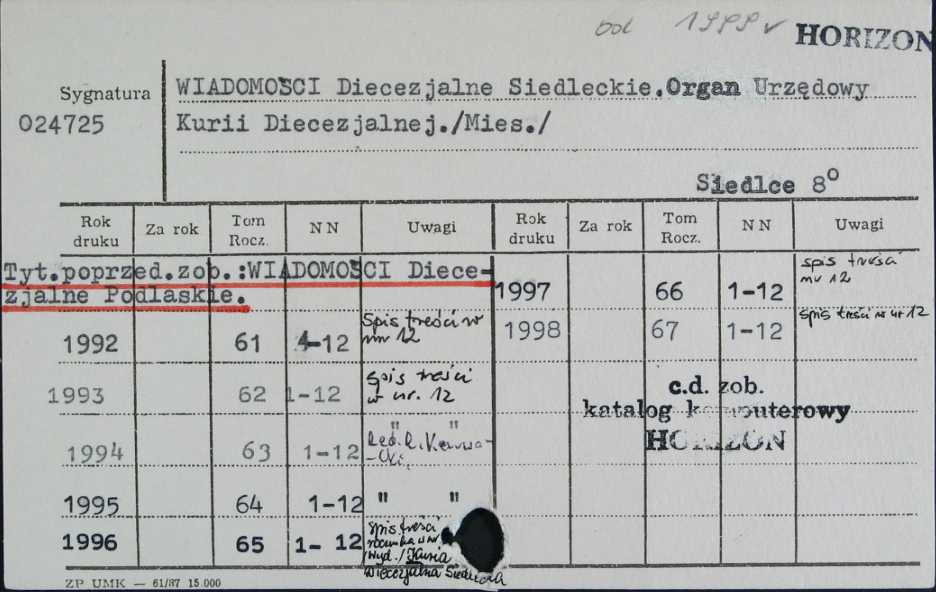 od 1999 HORIZON
Sygnatura
024725
WIADOMOŚCI Diecezjalne Siedleckie.Organ Urzędowy
Kurii Diecezjalnej./Mies./
Siedlce 8°
Rok druku Za rok Tom Rocz. NN Uwagi Rok druku Za rok Tom Rocz. NN Uwagi
Tyt.poprzed.zob.:WIADOMOŚCI Diece-
zjalne Podlaskie.
1992 61 4-12 Spis treści w nr 12
1993 62 1-12 Spis treści w nr. 12
1994 63 1-12 " " Red. R.
1995 64 1-12 " "
1996 65 1-12 spis treści w nr. Wyd./Kuria Diecezjalna
1997 66 1-12 spis treści nr 12
1998 67 1-12 spis treści w nr 12
c.d. zob.
katalog komputerowy
HORIZON
ZP UMK — 61/87 15.000